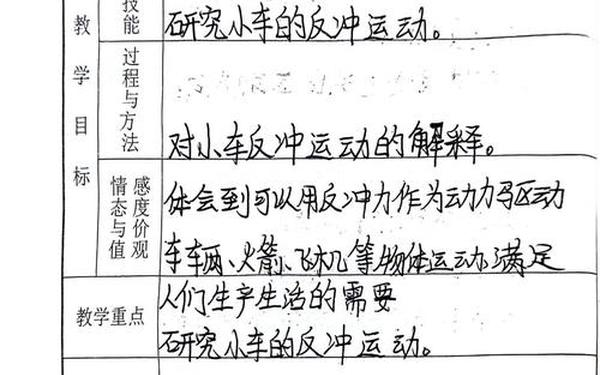 教学目标
技能
研究小车的反冲运动。
过程与方法
对小车反冲运动的解释。
情感态度与价值观
体会到可以用反冲力作为动力驱动
车辆、火箭、飞机等物体运动,满足
人们生产生活的需要
教学重点
研究小车的反冲运动。